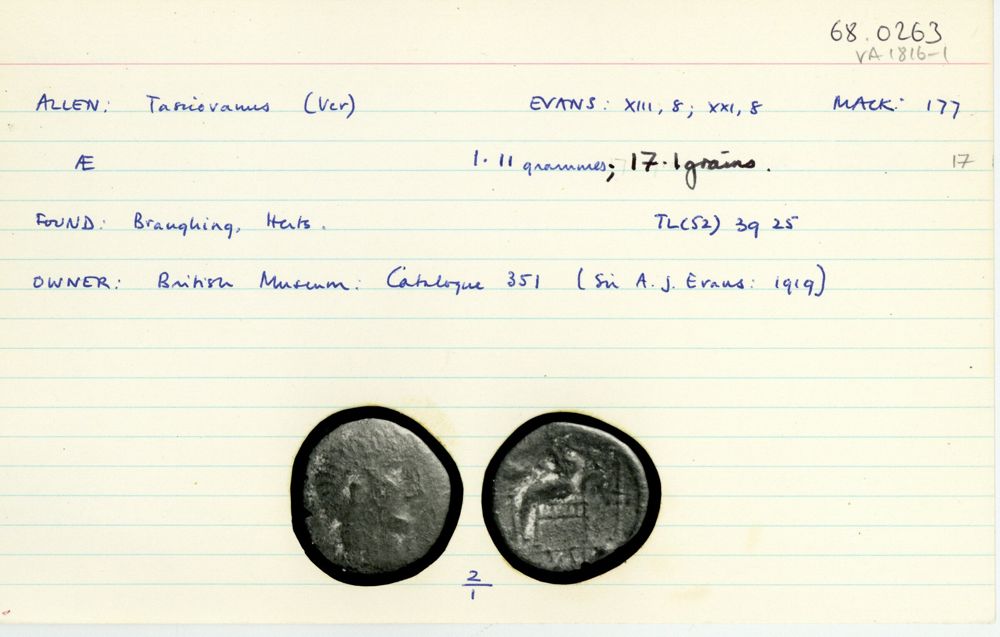 68.0263
VA 1816-1
ALLEN: Tasciovanus (Ver) EVANS: XIII, 8; XXI, 8 MACK: 177
Æ 1.11 grammes; 17.1 grains. 17
FOUND: Braughing, Herts. TL(52) 39 25
OWNER: British Museum: Catalogue 351 (Sir A. J. Evans: 1919)
2
1